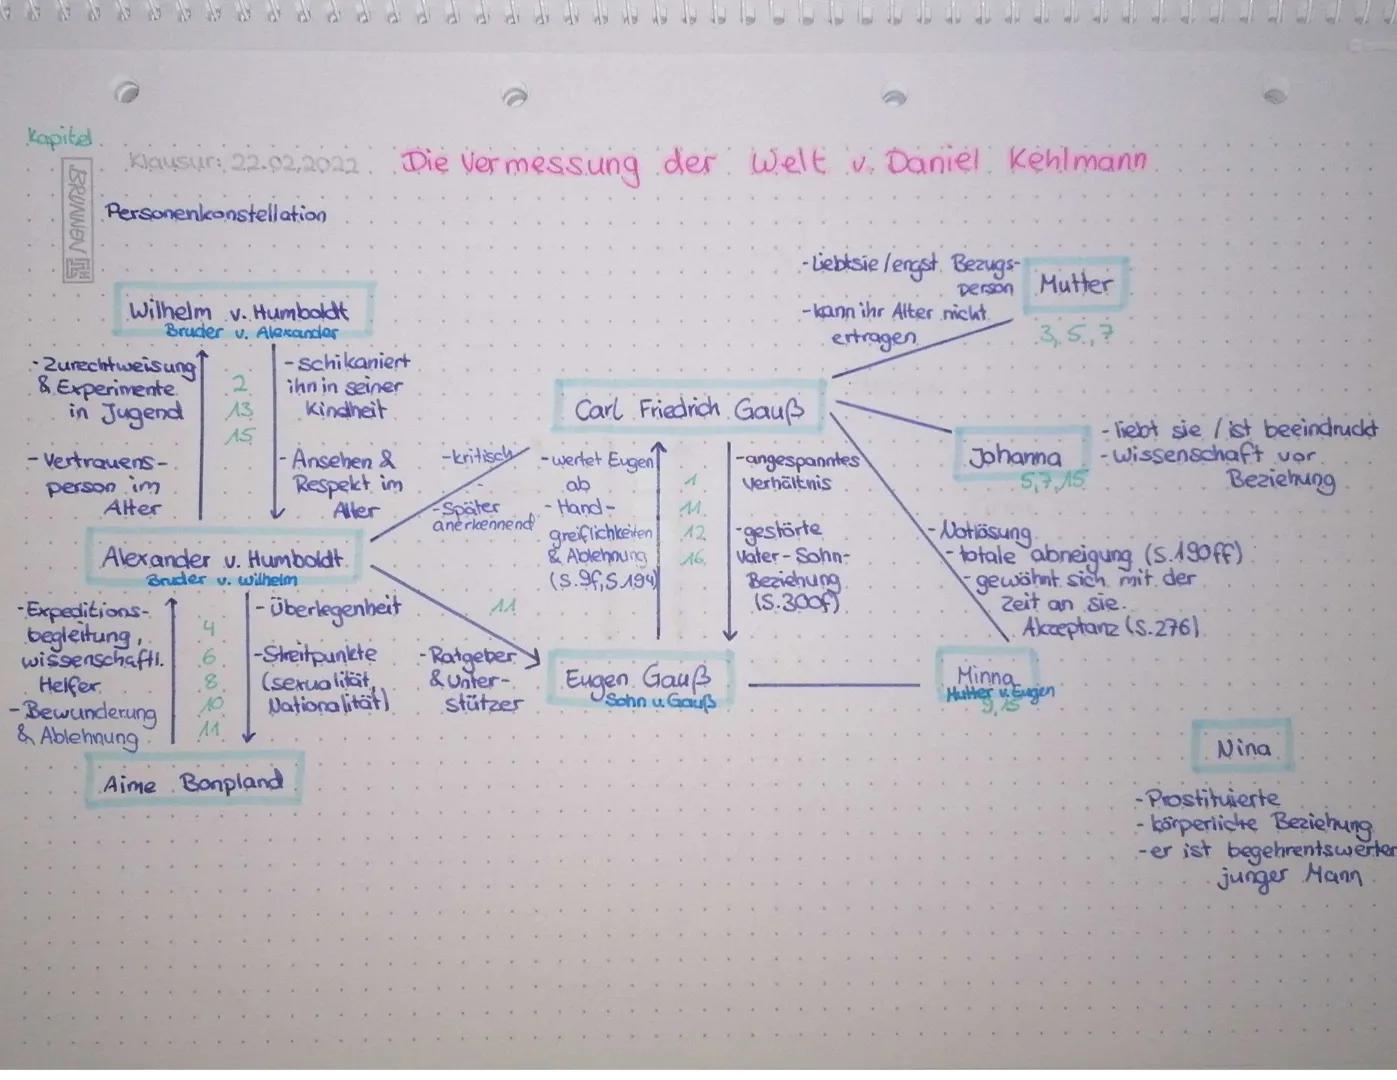 Kapitel
Klausur: 22.02.2022
Die Vermessung der Welt v. Daniel Kehlmann
BRUNNEN
Personenkonstellation
-Liebtsie/engst. Bezugs-
person
-kann ihr Alter nicht
ertragen
Mutter
3, 5, 7
Wilhelm v. Humboldt
Bruder v. Alexander
-Zurechtweisung
& Experimente
in Jugend
-Vertrauens-
person im
Alter
2
13
15
-schikaniert
ihn in seiner
Kindheit
-Ansehen &
Respekt im
Alter
Carl Friedrich Gauß
-kritisch
-Später
anerkennend
-wertet Eugen
ab
-Hand-
greiflichkeiten
& Ablehnung
(S.9f, S.194)
1
11
12
16
-angespanntes
Verhältnis
-gestörte
Vater-Sohn-
Beziehung
(S.300f)
Johanna
5,7,15
-liebt sie / ist beeindruckt
-Wissenschaft vor
Beziehung
-Notlösung
-totale abneigung (S.190ff)
-gewöhnt sich mit der
Zeit an sie.
Akzeptanz (S.276)
Alexander v. Humboldt
Bruder v. Wilhelm
-Expeditions-
begleitung,
wissenschaftl.
Helfer
-Bewunderung
& Ablehnung
4
6
8
10
11
-Überlegenheit
-Streitpunkte
(sexualität,
Nationalität)
11
-Ratgeber
& Unter-
stützer
Eugen Gauß
Sohn v. Gauß
Minna
Mutter v. Eugen
9,15
Aime Bonpland
Nina
-Prostituierte
-körperliche Beziehung
-er ist begehrentswerter
junger Mann